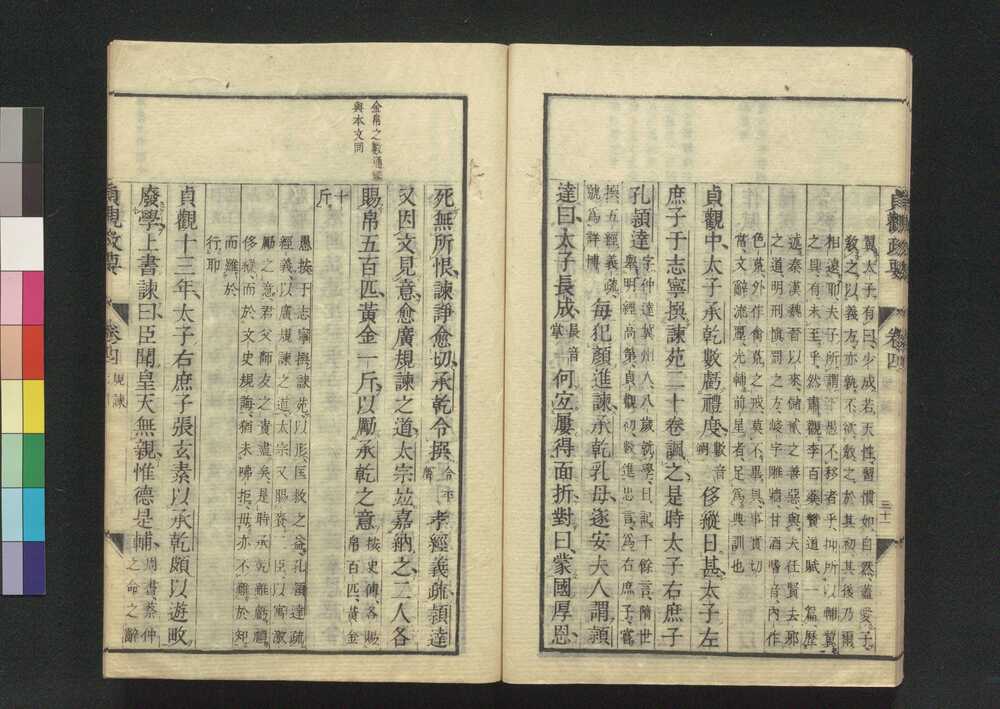 貞觀政要 卷四 三十一
翼太子有曰少成若天性習慣如自然蓋愛子
教之以義方亦孰不欲教之於其初其後乃爾
相遠耶夫子所謂下愚不移者乎抑所以輔翼
之具有未至乎然肅觀李百藥贊道賦一篇歷
述秦漢魏晉以來儲貳之善惡與夫任賢去邪
之道明刑慎罰之方峻宇雕牆甘酒嗜音內作
色荒外作禽荒之戒莫不畢具事實切
當文辭流麗光輔前星者足為典訓也
貞觀中太子承乾數虧禮度數音朔侈縱日甚太子左
庶子于志寧撰諫苑二十卷諷之是時太子右庶子
孔穎達字仲達冀州人八歲就學日記千餘言隋世舉明經高第貞觀初數進忠言為右庶子嘗
撰五經義疏號為詳博每犯顏進諫承乾乳母遂安夫人謂穎
達曰太子長成長音掌何宜屢得面折對曰蒙國厚恩
金帛之數通鑑
與本文同
死無所恨諫諍愈切承乾令撰令平聲孝經義疏穎達
又因文見意愈廣規諫之道太宗並嘉納之二人各
賜帛五百匹黃金一斤以勵承乾之意按史傳各賜帛百匹黃金
十斤
愚按于志寧撰諫苑以形匡救之益孔穎達疏
經義以廣規諫之道太宗又賜賚二臣以寓激
勵之意君父師友之責盡矣是時承乾雖虧禮
侈縱而於文史規誨猶未咈拒毋亦不難於知
而難於
行耶
貞觀十三年太子右庶子張玄素以承乾頗以遊畋
廢學上書諫曰臣聞皇天無親惟德是輔周書蔡仲之命之辭
貞觀政要 卷四 規諫